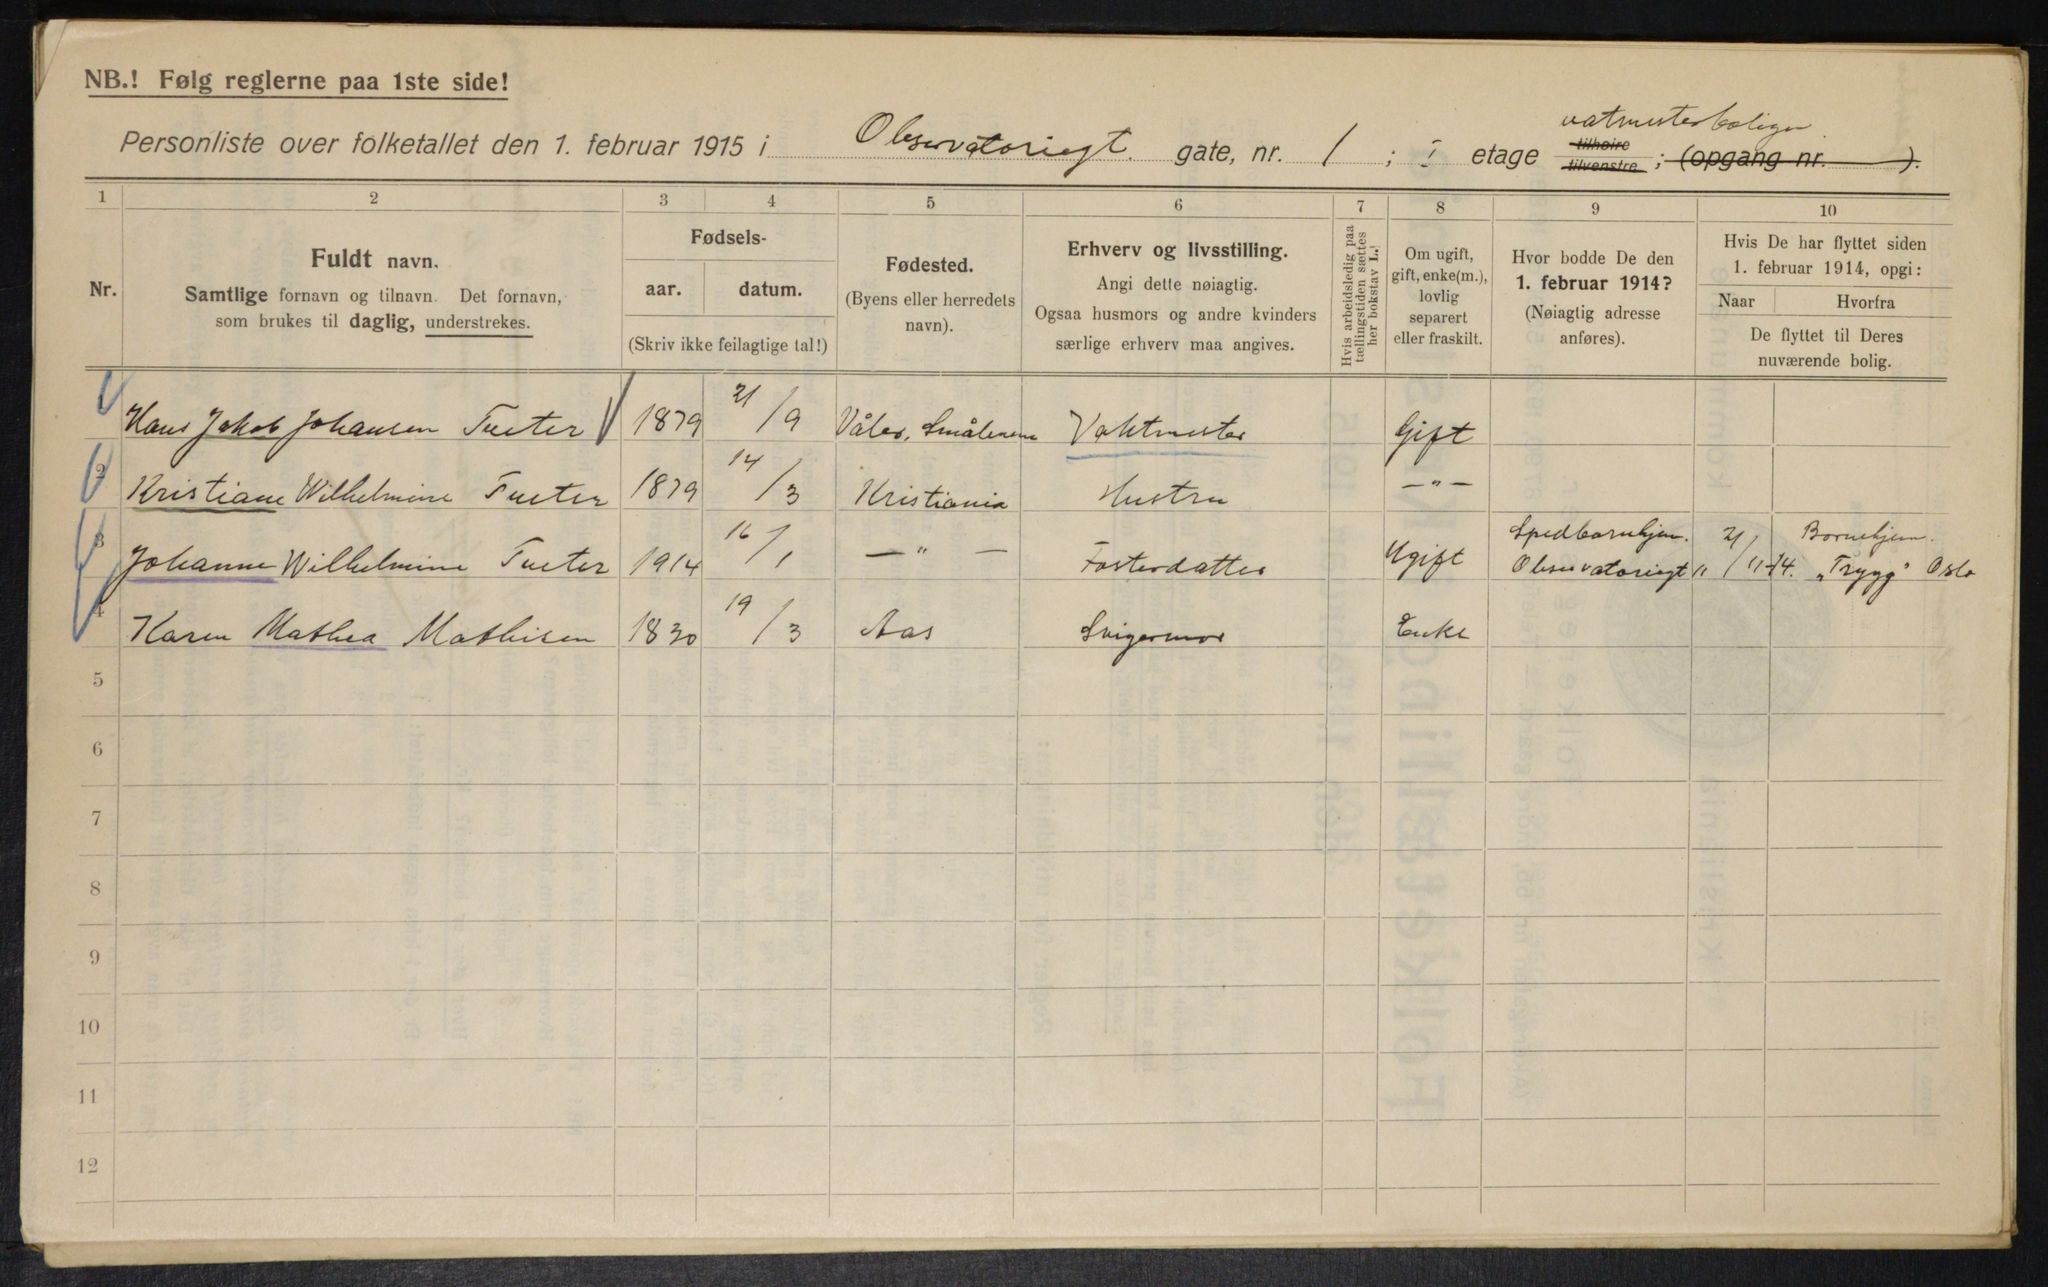 NB.! Følg reglerne paa 1ste side!
vatmesterboligen
Personliste over folketallet den 1. februar 1915 i Observatoriegt. gate, nr. 1 ; I etage tilhøire tilvenstre ; (opgang nr. ).
1 2 3 4 5 6 7 8 9 10
Nr.
Fuldt navn.
Samtlige fornavn og tilnavn. Det fornavn,
som brukes til daglig, understrekes.
Fødsels-
aar. datum.
(Skriv ikke feilagtige tal!)
Fødested.
(Byens eller herredets
navn).
Erhverv og livsstilling.
Angi dette nøiagtig.
Ogsaa husmors og andre kvinders
særlige erhverv maa angives.
Hvis arbeidsledig paa
tællingstiden sættes
her bokstav L.!
Om ugift,
gift, enke(m.),
lovlig
separert
eller fraskilt.
Hvor bodde De den
1. februar 1914?
(Nøiagtig adresse
anføres).
Hvis De har flyttet siden
1. februar 1914, opgi:
Naar Hvorfra
De flyttet til Deres
nuværende bolig.
1 Hans Jakob Johansen Tueter 1879 21/9 Våler, Smålenene Vaktmester Gift
2 Kristiane Wilhelmine Tueter 1879 14/3 Kristiania Hustru —"—
3 Johanne Wilhelmine Tueter 1914 16/1 —"— Fosterdatter Ugift Spedbarnhjem. Observatoriegt 21/11-14. Barnehjem. "Trygg" Oslo
4 Karen Mathea Mathisen 1830 19/3 Aas Svigermor Enke
5
6
7
8
9
10
11
12